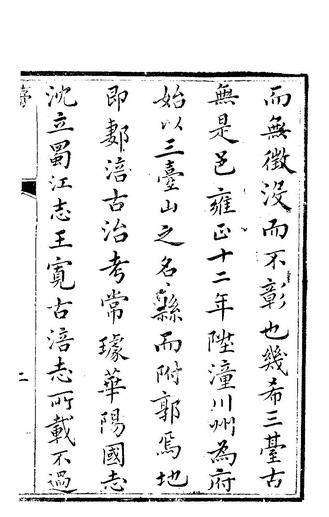 而無徵没而不彰也幾希三臺古
無是邑雍正十二年陞潼川州為府
始以三臺山之名名縣而附郭焉地
即郪涪古治考常璩華陽國志
沈立蜀江志王寬古涪志所載不過
二